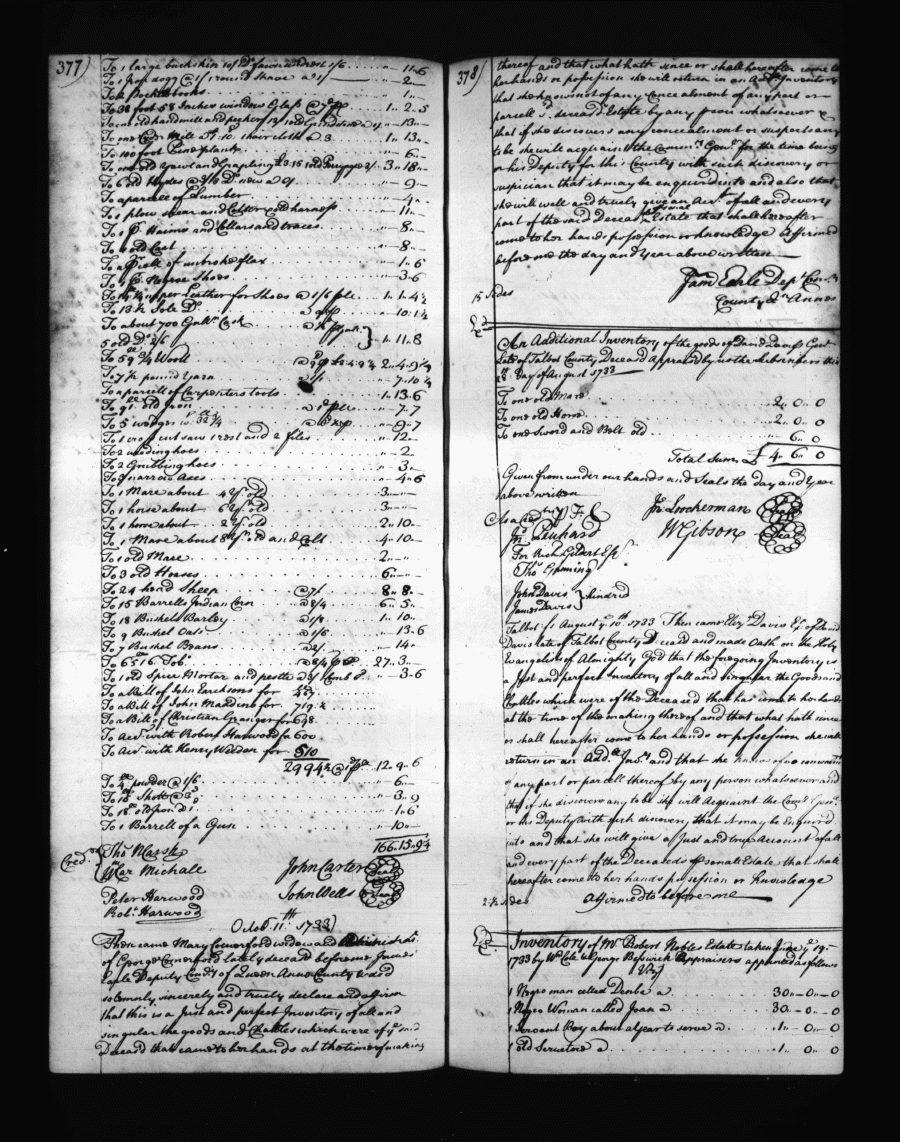 377)
To 1 large buckskin 10/ Do fawn undrest 1/6 . . . " 11 " 6
To 1 Iron dogg @ 1/ 1 round Shave a 1/ " 2 "
pocketbooks . . . " 1 "
To 32 foot 58 Inches window Glass . . . 1 " 2 " 5
old handmill and " 13 "
Mill 1 hair cloth a 3 . . 1 " 13 "
To 100 foot Pine plank . . . " 6 "
To one old yawl and Grapling £3.15 3 " 18 "
To 6 old Hydes new a 9/ . . . " 9 "
To a parcell of Lumber . . . " 4 "
To 1 plow shear and Colter & old harness . . . " 11 "
To 1 pr. Haims and Collars and traces . . . " 8 "
To 1 old Cart . . . " 8 "
To a of unbroke flax . . . " 1 " 6
To Negroe Shoes . . . " 3 " 6
upper Leather for Shoes @ 1/6 . . 1 " 1 " 4½
To 13 ½ Sole Do . . . " 10 " 1½
To about 700 Gulln Cask
5 old Do 2/6 } " 1 " 11 " 8
To 59 ¾ Wool 2 " 4 " 9¾
To 7 ½ pound yarn @ 1/ . . " 7 " 10 ¼
To a parcell of Carpenters tools . . . " 1 " 13 " 6
To 91 old Iron @ 1d . . " 7 " 7
To 5 wedges wt. 32 ¼ . . . " 9 " 7
To 1 cross cut saw 1 rest and 2 files . . . " 12 "
To 2 weeding hoes . . . " 2 "
To 2 Grubbing hoes . . . " 3 "
To 3 narrow Axes . . . " 4 " 6
To 1 Mare about 4 yr. old . . . 3 " "
To 1 horse about 6 yr. old . . . 3 " "
To 1 horse about 2 yr. old . . . 2 " 10 "
To 1 Mare about 8 yr. old and Colt . . . 4 " 10 "
To 1 old Mare . . . 2 " "
To 3 old Horses . . . 6 " "
To 24 head Sheep @ 7/ . . . 8 " 8 "
To 15 Barrells Indian Corn @ 8/4 . . . 6 " 5 "
To 18 Bushels Barley @ 1/8 . . . 1 " 10 "
To 9 Bushel Oats @ 1/6 . . . " 13 " 6
To 7 Bushel Beans @ 2/ . . . " 14 "
To 6516 Tob. @ 8/4 . . 27 " 3 "
To 1 old Spice Mortar and pestle . . " 3 " 6
To a Bill of John Jacksons for
To a Bill of John for 719 ½
To a Bill of Christian Granger for 698
To Acct. with Robert Harwood for 600
To Acct. with Henry Wilson for 510
2994½ @ 1d 12 " 9 " 6
To 4 powder @ 1/6 . . . " 6 "
To 15 Shott @ 3d . . . " 3 " 9
To 18 old . . . " 1 " 6
To 1 Barrell of a Gun . . . " 10 "
166 " 15 " 9¼
Cred.rs { Thos. Marsh
Mar Michale John Carter Seal
Peter Harwood John Wells Seal
Robt. Harwood
Octobr. 11th 1733)
Then came Mary Comerford widow and
of George Comerford lately deceasd before me James
Earle Deputy Comry of Queen Anns County & did
solemnly sincerely and truely declare and affirm
that this is a Just and perfect Inventory of all and
singular the goods and Chattles which were of ye said
Deceasd that came to her hands at the time of making
378)
thereof and that what hath since or shall hereafter come to
her hands or possession she will return in an Addl. Inventory
that she knows not of any concealment of any part or
parcell of ye deceasd. Estate by any person whatsoever &
that if she discovers any concealment or suspects any
to be she will acquaint the Commy. Genl. for the time being
or his Deputy for this County with such discovery or
suspicion that it may be enquired into and also that
she will well and truely give an Acct. of all and every
part of the said Deceasd. personal Estate that shall hereafter
come to her hands possession or knowledge Affirmed
before me the day and Year above written
15 sides Jams Earle Depy. Com.ry
County Qn Annes
An Additional Inventory of the goods of David Davis Gent.
late of Talbot County Deceasd appraised by us the Subscribers this
day of August 1733
To one old Mare . . . 2 " 0 " 0
To one old Horse . . . 2 " 0 " 0
To one Sword and Belt old . . . " 6 " 0
Total Sum £ 4 " 6 " 0
Given from under our hands and Seals the day and Year
above written
Jn. Loockerman Seal
For Richd. Gildart Esqr. W Gibson Seal
John Davis } kindred
James Davis
Talbot ss August ye 10th 1733 Then came Eliz. Davis Ex. of David
Davis late of Talbot County Deceasd and made Oath on the Holy
Evangelists of Almighty God that the foregoing Inventory is
a Just and perfect Inventory of all and singular the Goods and
Chattles which were of the Deceased that has come to her hands
at the time of the making thereof and that what hath since
or shall hereafter come to her hands or possession she will
return in an Addl. Invy. and that she knows of no concealment
of any part or parcell thereof by any person whatsoever and
that if she discovers any to be she will Acquaint the Comy. Genl.
or his Deputy with such discovery, that it may be Enquired
into and that she will give a Just and true Account of all
and every part of the Deceaseds personal Estate that shall
hereafter come to her hands possession or knowledge
2½ sides Affirmed to before me
Inventory of Mr. Robert Nobles Estate taken June ye 19th
1733 by Wm. Cole & George Beswick Appraisers appointed as follows
Vizt
1 Negro man called Denbe a . . . 30 " 0 " 0
1 Negro Woman called Joan a . . . 30 " 0 " 0
1 Servant Boy about a year to serve a . . . 1 " 0 " 0
1 old Scrutore a . . . 1 " 0 " 0